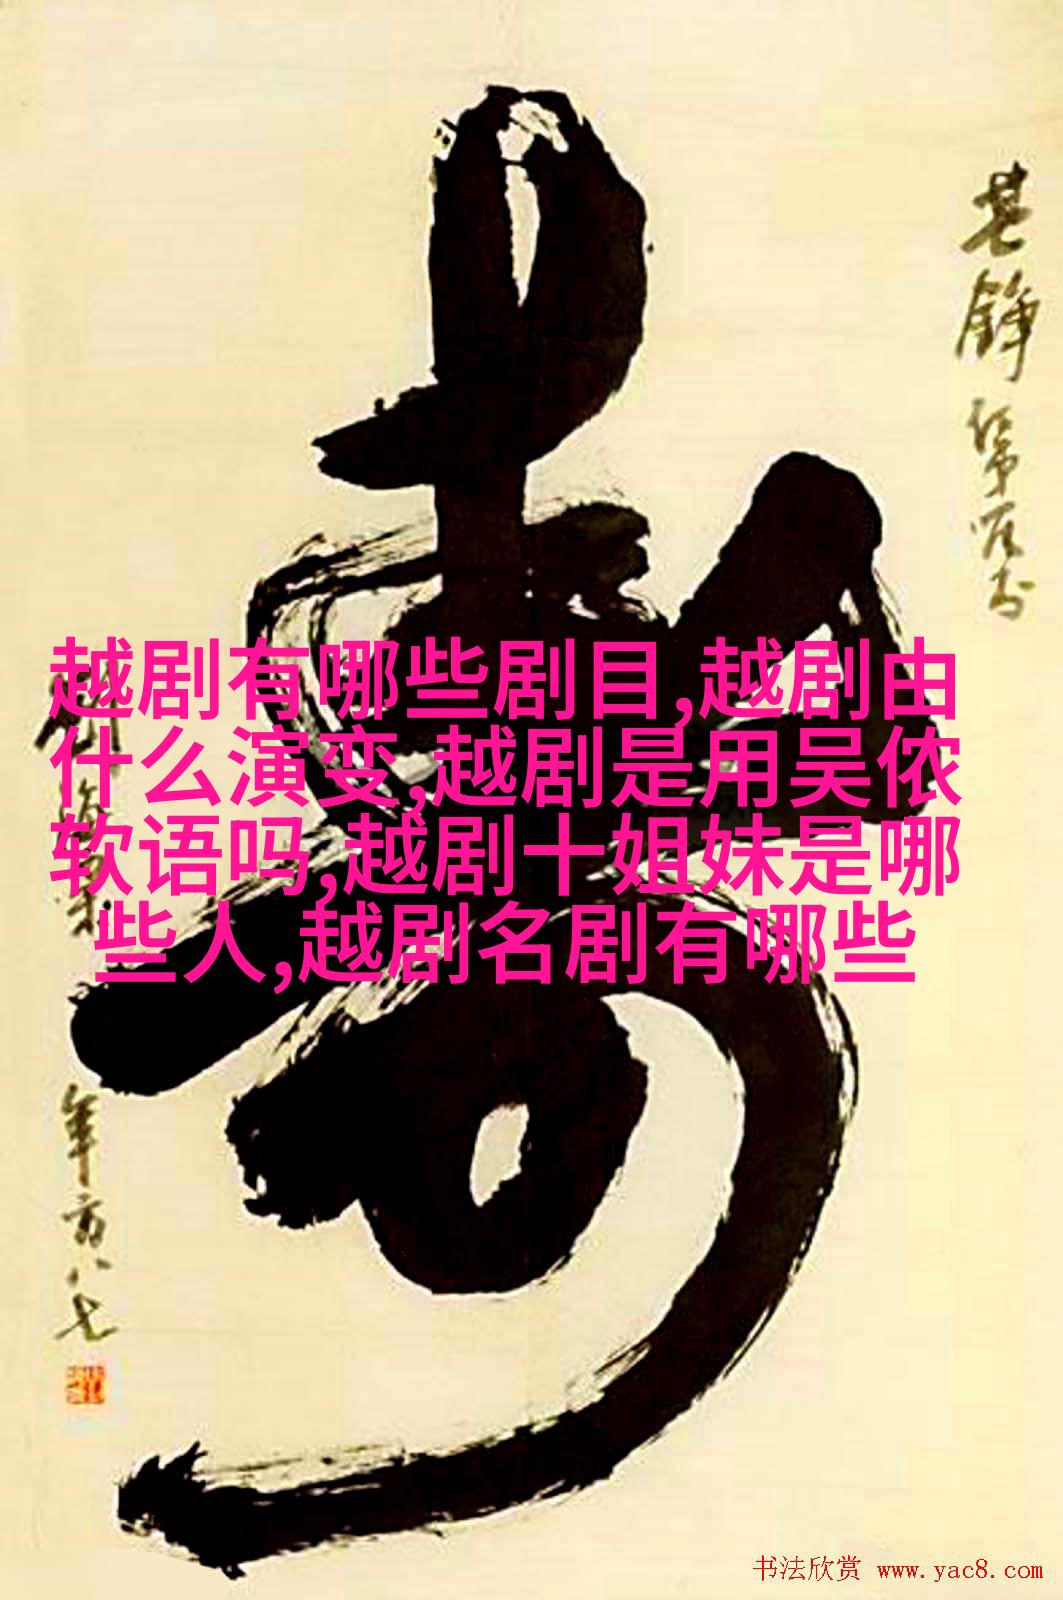 越剧有哪些剧目,越剧由
什么演变,越剧是用吴侬
软语吗,越剧十姐妹是哪
些人,越剧名剧有哪些
寿
年方八七
书法欣赏 www.yac8.com